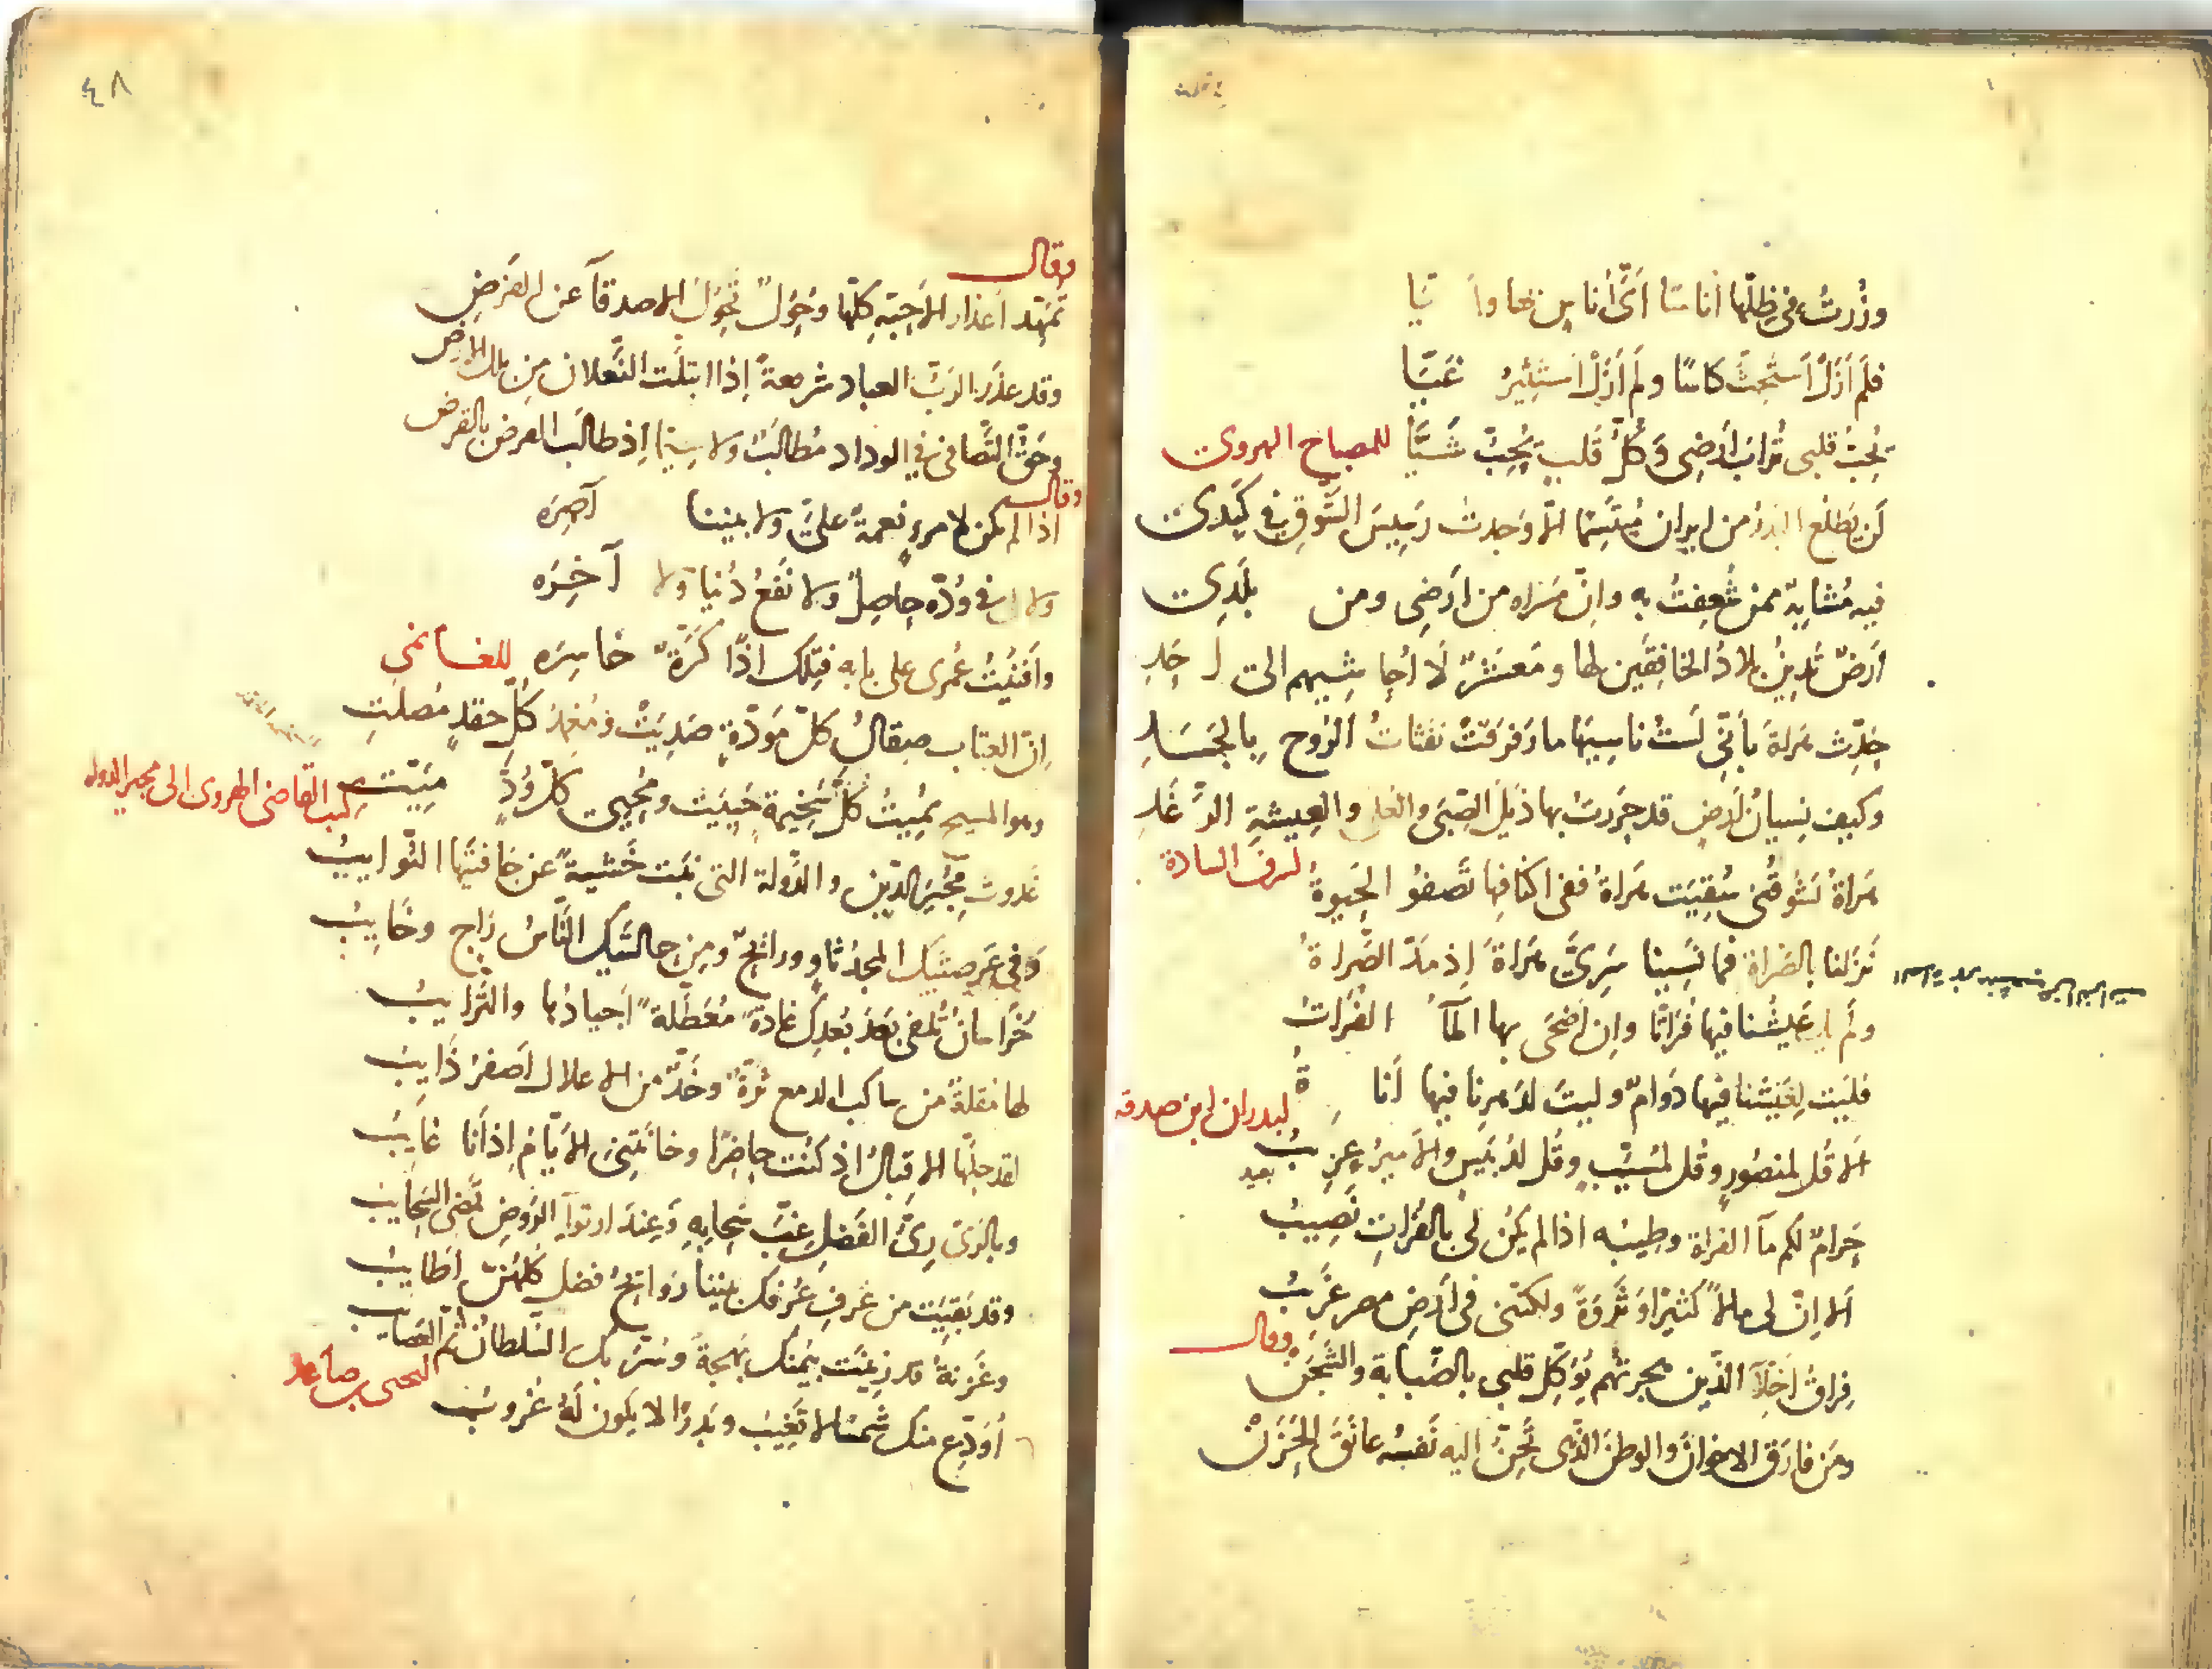 وزُرتُ في ظِلّها أناسًا أيَّ أناسٍ
فلم أزَلْ أستَحِثُّ كاسًا ولم أزَلْ أستثيرُ
يُحِبُّ قلبي تُرابَ أرضي وكُلُّ قلبٍ يُحِبُّ شيّا للمصباح الهروي
لن يطلع البدرُ من إيران مبتسمًا الّا وجدت رسيسَ الشوقِ في كبدي
فيه مُشابهة ممن شُعِفتُ به وانّ مَسراه من أرضي ومن بلدي
أرضٌ تُدِينُ بلادُ الخافقَين لها ومَعشرٌ لا أحاشيهم الى احدِ
حدِّث هَراة بأنّي لستُ ناسيَها ما رَفرَفَتْ نفثاتُ الرُوح بالجسدِ
وكيف نِسيان أرضٍ قد جررتُ بها ذيلَ الصِّبَى والعُلى والعيشةِ الرَّغَدِ
هَراةُ تَشُوقُني سُقِيَت هَراةُ ففي اكنافِها تَصفُو الحَيوةُ لشرف السادة
نَزَلنا بالصَراةِ فما نَسِينا سَرِيَّ هَراةَ إذ مَدَّ الصَراةُ
ولم عَيشُنا فيها فُراتًا وإن أضحَى بها الماءُ الفُراتُ
فليتَ لِعَيشنا فيها دَوامٌ وليتَ لدهرِنا فيها أناةُ لبدران ابن صدقه
ألا قُل لمنصُورٍ وقُل لمُسَيَّبٍ وقُل لدُبَيسٍ والأميرُ غريبُ
بعيد
حَرامٌ لكم ماءُ الفراة وطِيبُه اذا لم يكُن لي بالفُراتِ نَصيبُ
ألا إنّ لي مالاً كثيرًا وثَروَةً ولكنّني في أرضِ مصر غَريبُ
وقال
فِراقُ اخِلّاءَ الذين هجرتُهم يُوَكِّل قلبي بالصَّبابة والشَّجَن
ومَن فارَق الاخوانَ والوطنَ الذي تَحِنُّ اليه نَفسُه عانَقَ الحَزَنْ
٤٨
وقال
تُمهَّد أعذار الأحِبّةِ كلّها وحُؤُلٌ تحوُّلَ الأصدقاءَ عن الغَرَضِ
وقد عذَر الربُّ العبادَ شريعةً إذا ابتلّت النَّعلان من بلل الأرض
وحَقُّ التَّصافي في الوداد مُطالبٌ ولا سيّما إذ طالَب العرض بالقرض
وقال
اذا لم يكن لامرءٍ نعمةٌ عليَّ ولا بيننا آصِرَه
ولا لي في وُدّه حاصِلٌ ولا نَفعُ دُنيا ولا آخِرَه
وأفنَيتُ عُمرى على بابه فتِلك اذًا كَرَّةٌ خاسِرَه للغانمي
إنّ العتابَ صِقالُ كلّ مَودّةٍ صَدِيَتْ ومُغمِدُ كلّ حقدٍ مُصلَتِ
وهو المسيح يُميتُ كلَّ سَخيمةٍ حَيِيَت ويُحيي كلَّ وُدٍّ ميّتِ كتب القاضي الهروي الى مجير الدولة
غدوتَ مُجيرَ الدّين والدَّولة التي نبَت خَشيةً عن جانبَيها النوايبُ
وفي عَرصتَيك المجدُ ثاوٍ ورائحٌ ومن حالتَيك الناسُ راجٍ وخايبُ
خُراسانُ تُلفى بَعدَ بُعدِك غادةً مُعَطَّلةً أجيادُها والتَّرايبُ
لها مُقلةٌ من ساكب الدمع ثَرَّةٌ وخَدٌّ من الاعلال أصفرُ ذايبُ
لقد حلّها الاقبالُ إذ كنتَ حاضِرًا وخانَتنيَ الأيّامُ إذ أنا غايبُ
وبالرَيّ رِيُّ الفَضلِ غِبَّ سَحابِه وعِندَ ارتواءِ الرَّوضِ تمضي السَحايبُ
وقد بَقِيَت من عَرفِ عُرفك بيننا روائحُ فضلٍ كلُّهنّ أطايبُ
وغَزنةُ قد زِينَت بيُمنك بَهجةً وسُرّ بك السُلطانُ ثمّ العصايب
ليحيى بن صاعد
أُوَدِّع منك شَمسًا لا تَغيبُ وبَدرًا لا يكون لَهُ غُروبُ